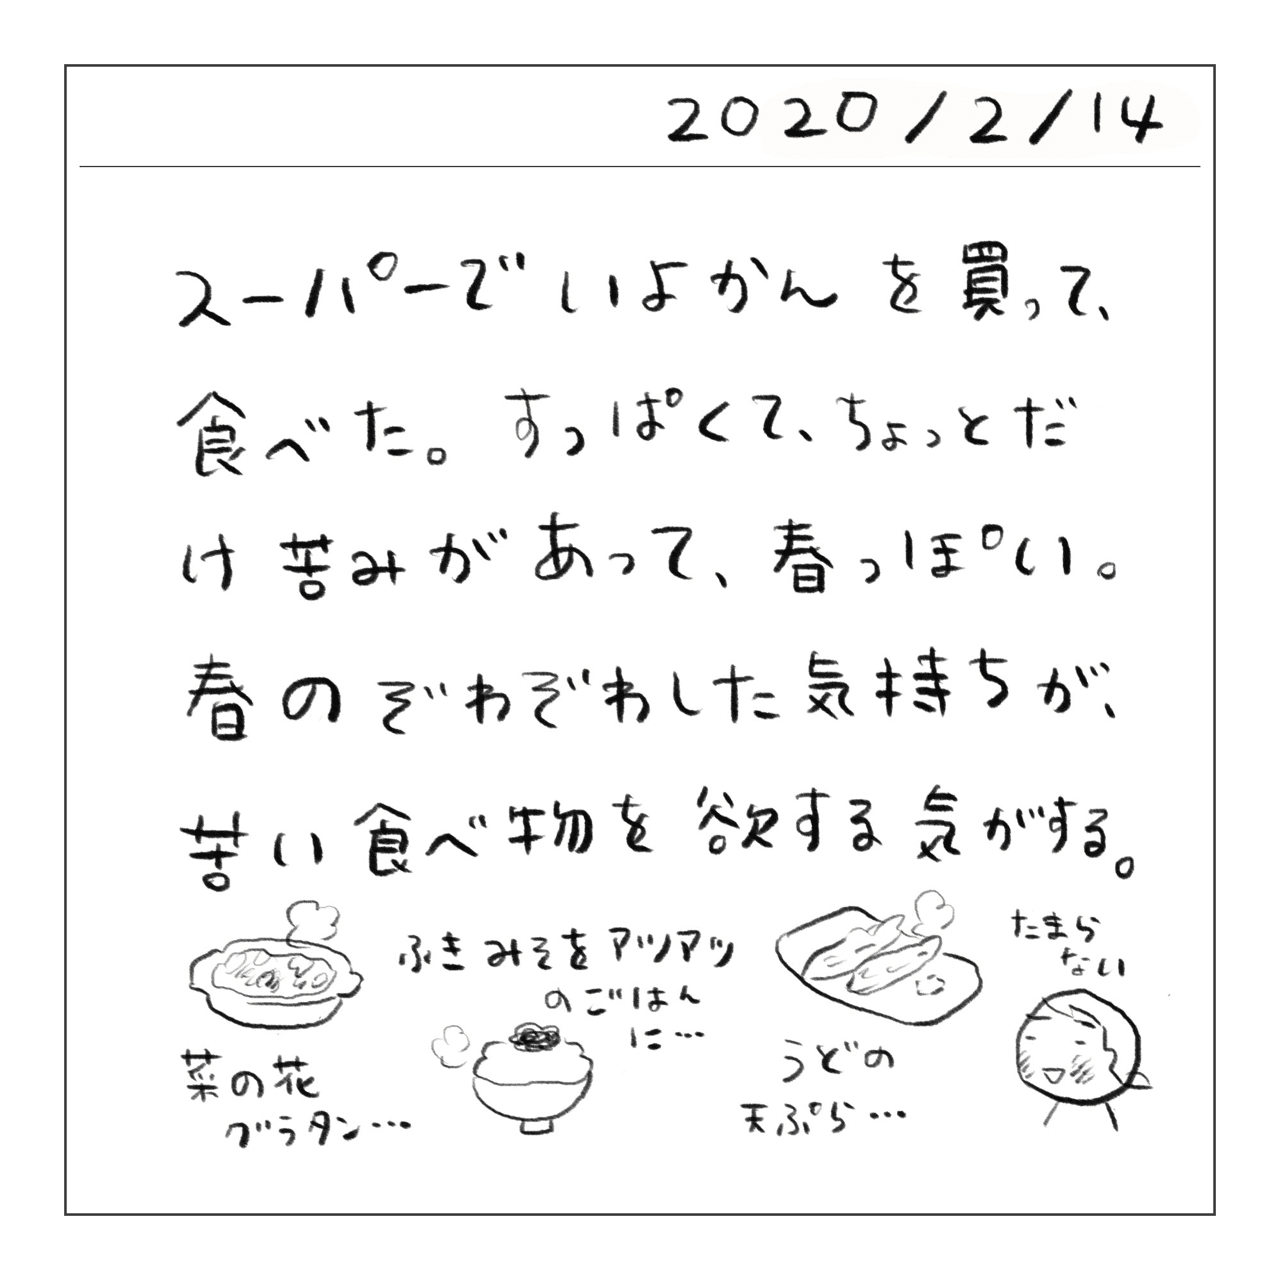 2020/2/14
スーパーでいよかんを買って、
食べた。すっぱくて、ちょっとだ
け苦みがあって、春っぽい。
春のぞわぞわした気持ちが、
苦い食べ物を欲する気がする。
菜の花
グラタン…
ふきみそをアツアツ
のごはん
に…
うどの
天ぷら…
たまら
ない